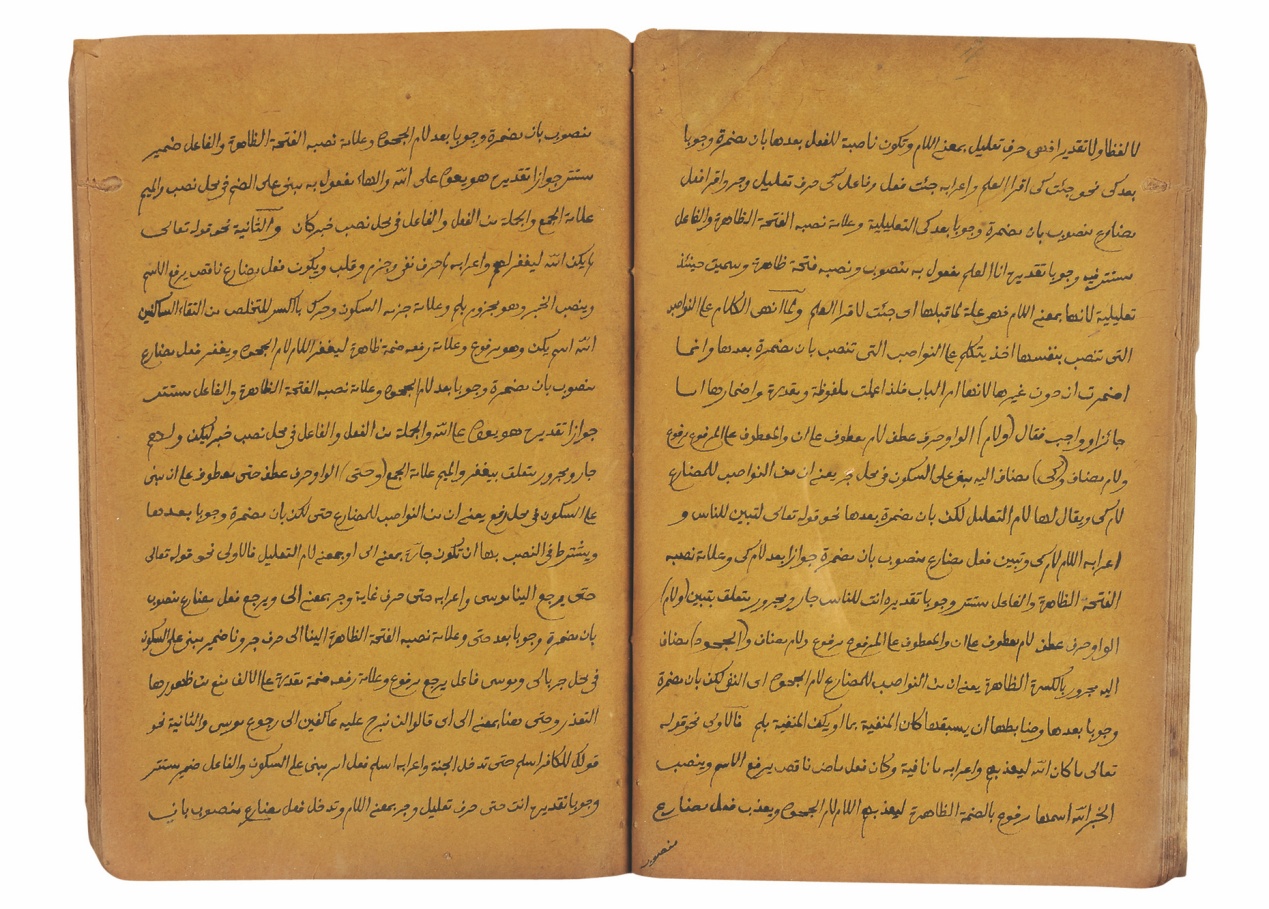 لا لفظا ولا تقديرا فهى حرف تعليل بمعنى اللام وتكون ناصبة للفعل بعدها بان مضمرة وجوبا
بعد كى نحو جئت كى اقرا العلم واعرابه جئت فعل وفاعل كى حرف تعليل وجر واقرا فعل
مضارع منصوب بان مضمرة وجوبا بعد كى التعليلية وعلامة نصبه الفتحة الظاهرة والفاعل
مستتر فيه وجوبا تقديره انا العلم مفعول به منصوب ونصبه فتحة ظاهرة وسميت حينئذ
تعليلية لانها بمعنى اللام فهى علة لما قبلها اى جئت لاقرا العلم ولما انهى الكلام على النواصب
التى تنصب بنفسها اخذ يتكلم على النواصب التى تنصب بان مضمرة بعدها وانما
اضمرت ان دون غيرها لانها ام الباب فلذا عملت ملفوظة ومقدرة واضمارها اما
جائز او واجب فقال (ولام) الواو حرف عطف لام معطوف على ان والمعطوف على المرفوع مرفوع
ولام مضاف و(كى) مضاف اليه مبنى على السكون فى محل جر يعنى ان من النواصب للمضارع
لام كى ويقال لها لام التعليل لكن بان مضمرة بعدها نحو قوله تعالى لتبين للناس و
اعرابه اللام لام كى وتبين فعل مضارع منصوب بان مضمرة جوازا بعد لام كى وعلامة نصبه
الفتحة الظاهرة والفاعل مستتر وجوبا تقديره انت للناس جار ومجرور يتعلق بتبين (ولام)
الواو حرف عطف لام معطوف على ان والمعطوف على المرفوع مرفوع ولام مضاف و(الجحود) مضاف
اليه مجرور بالكسرة الظاهرة يعنى ان من النواصب للمضارع لام الجحود اى النفى لكن بان مضمرة
وجوبا بعدها وضابطها ان يسبقها كان المنفية بما او يكن المنفية بلم فالاولى نحو قوله
تعالى ما كان الله ليعذبهم واعرابه ما نافية وكان فعل ماض ناقص يرفع الاسم وينصب
الخبر الله اسمها مرفوع بالضمة الظاهرة ليعذبهم اللام لام الجحود ويعذب فعل مضارع
منصوب
منصوب بان مضمرة وجوبا بعد لام الجحود وعلامة نصبه الفتحة الظاهرة والفاعل ضمير
مستتر جوازا تقديره هو يعود على الله والهاء مفعول به مبنى على الضم فى محل نصب والميم
علامة الجمع والجملة من الفعل والفاعل فى محل نصب خبر كان والثانية نحو قوله تعالى
لم يكن الله ليغفر لهم واعرابه لم حرف نفى وجزم وقلب ويكون فعل مضارع ناقص يرفع الاسم
وينصب الخبر وهو مجزوم بلم وعلامة جزمه السكون وحرك بالكسر للتخلص من التقاء الساكنين
الله اسم يكن وهو مرفوع وعلامة رفعه ضمة ظاهرة ليغفر اللام لام الجحود ويغفر فعل مضارع
منصوب بان مضمرة وجوبا بعد لام الجحود وعلامة نصبه الفتحة الظاهرة والفاعل مستتر
جوازا تقديره هو يعود على الله والجملة من الفعل والفاعل فى محل نصب خبر ليكن ولهم
جار ومجرور يتعلق بيغفر والميم علامة الجمع (وحتى) الواو حرف عطف حتى معطوف على ان مبنى
على السكون فى محل رفع يعنى ان من النواصب للمضارع حتى لكن بان مضمرة وجوبا بعدها
ويشترط فى النصب بها ان تكون جارة بمعنى الى او بمعنى لام التعليل فالاولى نحو قوله تعالى
حتى يرجع الينا موسى واعرابه حتى حرف غاية وجر بمعنى الى ويرجع فعل مضارع منصوب
بان مضمرة وجوبا بعد حتى وعلامة نصبه الفتحة الظاهرة الينا الى حرف جر ونا ضمير مبنى على السكون
فى محل جر بالى وموسى فاعل يرجع مرفوع وعلامة رفعه ضمة مقدرة على الالف منع من ظهورها
التعذر وحتى هنا بمعنى الى اى قالوا لن نبرح عليه عاكفين الى رجوع موسى والثانية نحو
قولك للكافر اسلم حتى تدخل الجنة واعرابه اسلم فعل امر مبنى على السكون والفاعل ضمير مستتر
وجوبا تقديره انت حتى حرف تعليل وجر بمعنى اللام وتدخل فعل مضارع منصوب بان